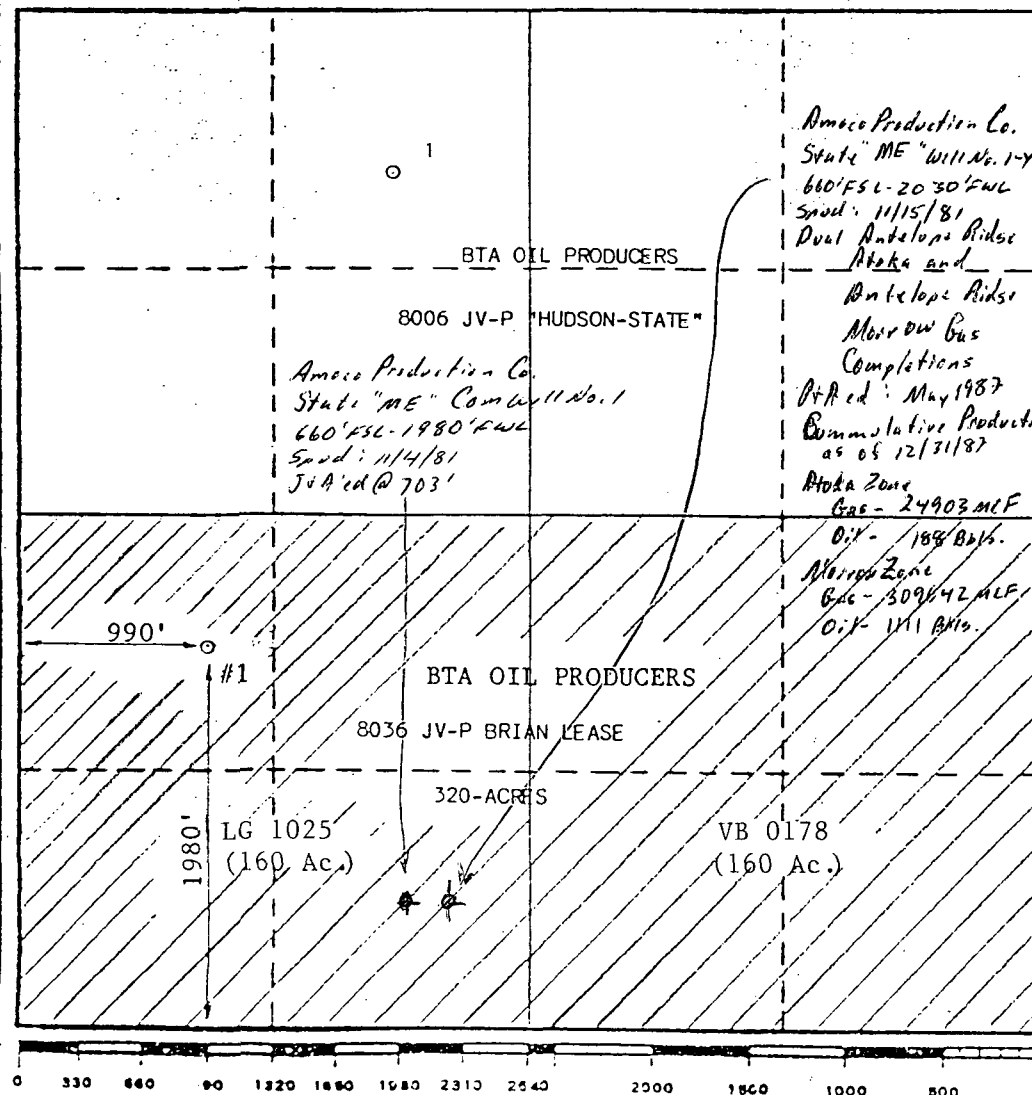 1
BTA OIL PRODUCERS
8006 JV-P "HUDSON-STATE"
Amoco Production Co.
State "ME" Com Well No. 1
660' FSL-1980' FWL
Spud: 11/4/81
J&A'ed @ 703'
Amoco Production Co.
State "ME" Well No. 1-Y
660' FSL-2030' FWL
Spud: 11/15/81
Dual Antelope Ridge
Atoka and
Antelope Ridge
Morrow Gas
Completions
P&A'ed: May 1987
Cummulative Producti
as of 12/31/87
Atoka Zone
Gas - 24903 MCF
Oil - 188 Bbls.
Morrow Zone
Gas - 309642 MCF
Oil - 1111 Bbls.
990'
#1
BTA OIL PRODUCERS
8036 JV-P BRIAN LEASE
320-ACRES
1980'
LG 1025
(160 Ac.)
VB 0178
(160 Ac.)
0 330 660 90 1320 1650 1980 2310 2640 2000 1500 1000 500